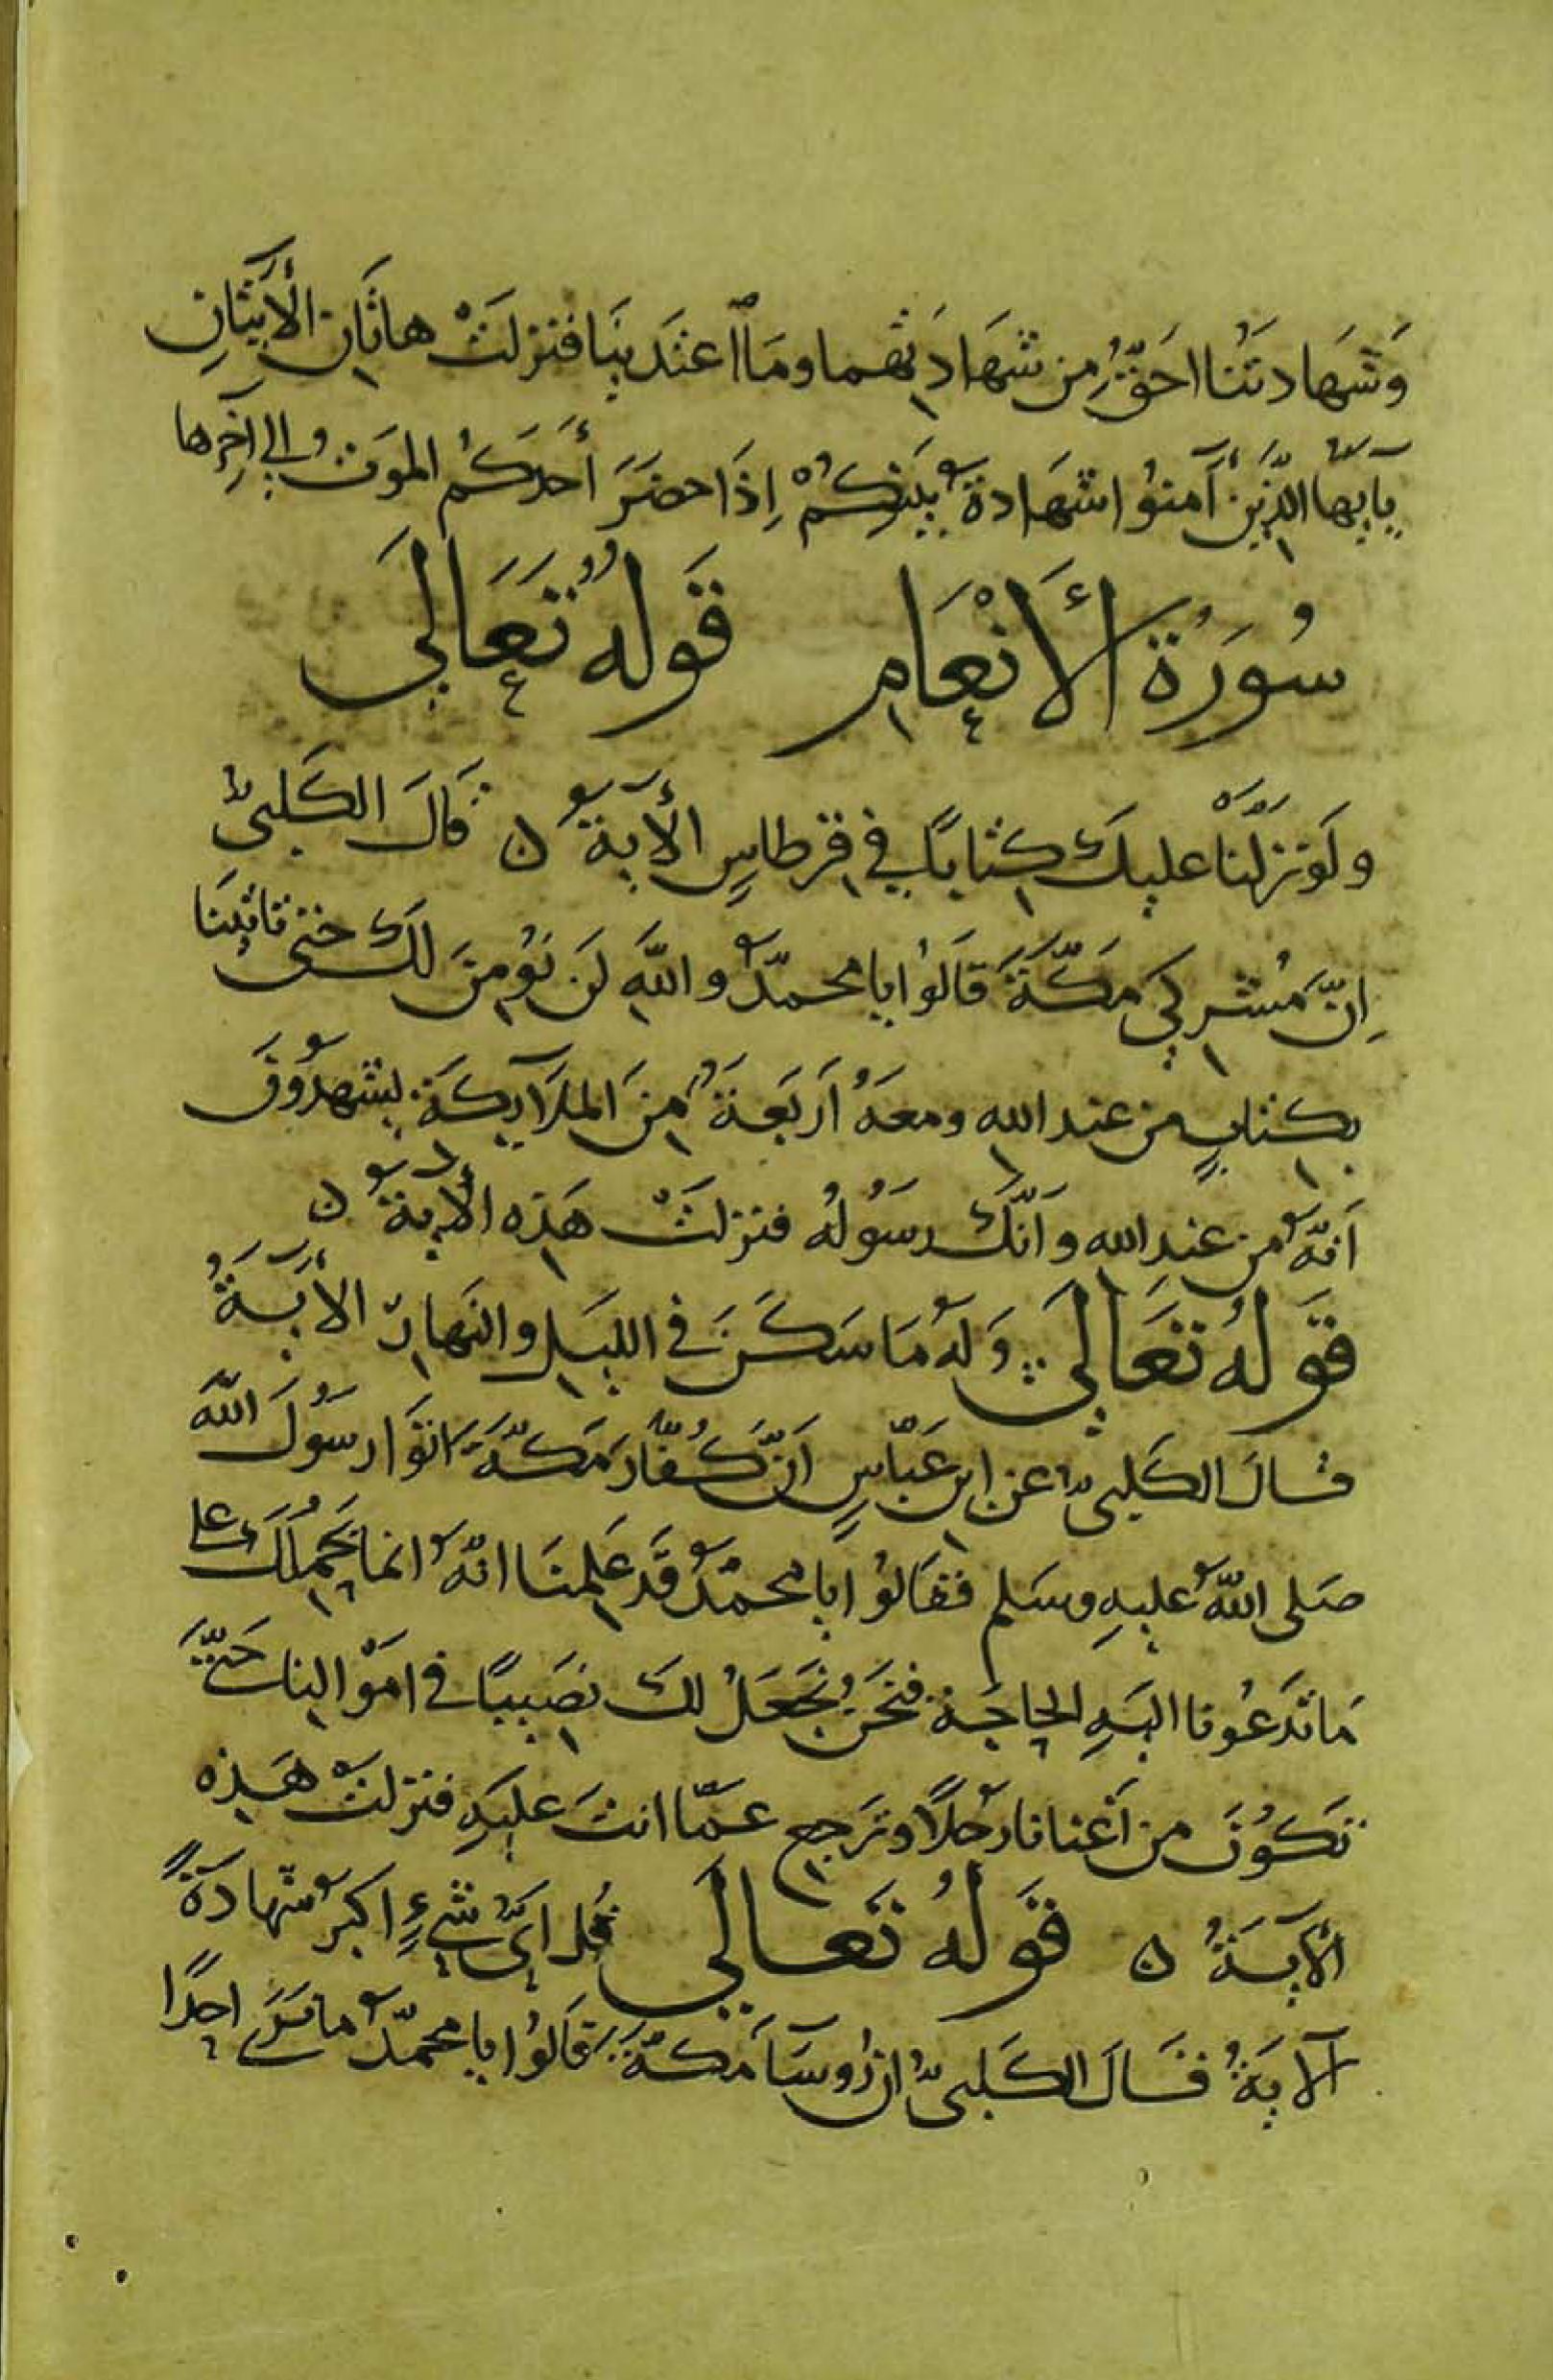 وَشَهَادتُنا احَقُّ مِن شَهَادَتِهما وما اعتَدَينَا فنزلَتْ هاتَانِ الأَيتَانِ
يآيّها الذِينَ آمنوُا شهَادةُ بَينِكُمْ إذَا حضَرَ أحَدَكُم الموَتُ إلى آخِرها
سُورَة الأَنْعَامِ قَولهُ تَعَالَى
ولَو نزلَّنْا عليكَ كِتابًا في قِرطاسٍ الأَيةُ ن قَالَ الكَلبىُّ
إنَّ مُشرِكي مكَّةَ قَالوُا يا محمّدُ واللهِ لَن نؤمِنَ لكَ حتى تاتينَا
بكِتابٍ من عندِ اللهِ ومعَهُ أَربَعةٌ مِنَ الملَآيِكَةِ يشهدُونَ
أنَّهُ من عندِ الله وأنَّكَ رسَولُهُ فنزلَتْ هَذِه الأَيةُ ن
قَولهُ تعَالَى وَلهُ مَا سَكَنَ في الليلِ والنهارِ الأَيَةُ
قالَ الكَلبىُّ عن ابنِ عَبّاسٍ أنَّ كُفّارَ مَكّةَ اتَوا رسُولَ اللهَ
صَلى اللهُ عليهِ وسَلم فقَالوُا يا محمدُ قَد عَلِمنَا انّهُ انما يَحمِلُكَ على
مَا تَدعُونا اليَهِ الحاجَة فنَحَنُ نَجعَلُ لكَ نصِيبًا في اموَالِنا حَتّىَ
تكَوُنَ من أَغنانا رجُلًا وترَجِع عمّا انتَ عليَهِ فنزلتْ هَذِه
الأَيَةُ ن قَولهُ تعَالَى قُل ايُّ شَيءٍ اكبرُ شهادَةً
الآيَةُ قَالَ الكَلبىُّ ان رُوسَآ مَكةَ قَالوُا يا محمّدُ ما نَرَى احدًا